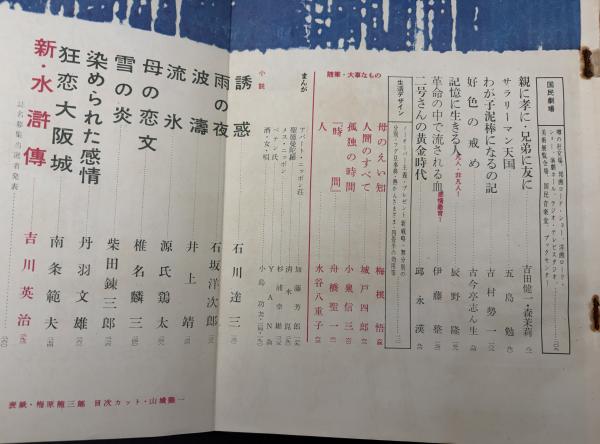 国民劇場
親に孝に・兄弟に友に 吉田健一・森茉莉
サラリーマン天国 五島勉
わが子泥棒になるの記 吉村勢一
好色の戒め 古今亭志ん生
記憶に生きる人 凡人・非凡人! 辰野隆
革命の中で流される血 感情教育! 伊藤整
二号さんの黄金時代 邱永漢
生活デザイン
随筆・大事なもの
母のえい知 梅根悟
人間のすべて 城戸四郎
孤独の時間 小泉信三
「時間」 舟橋聖一
人 水谷八重子
まんが
アパート・ニッポン荘 加藤芳郎
聖徳曼陀羅 清水崑
メス・ニッポン 杉浦幸雄
ペテン氏 YAN
酒・女・唄 小島功
小説
誘惑 石川達三
雨の夜 石坂洋次郎
波濤 井上靖
流氷 源氏鶏太
母の恋文 椎名麟三
雪の炎 柴田錬三郎
染められた感情 丹羽文雄
狂恋大阪城 南条範夫
新・水滸傳 吉川英治
誌名募集当選者発表
表紙・梅原龍三郎 目次カット・山城隆一